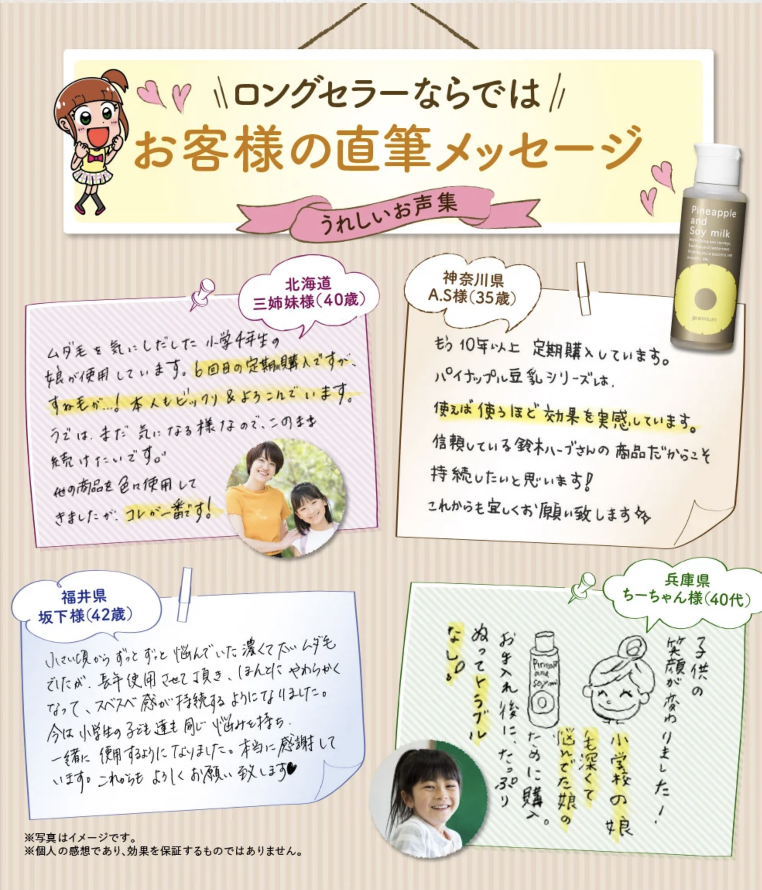 ロングセラーならでは
お客様の直筆メッセージ
うれしいお声集
Pineapple
and
Soy milk
premium
北海道
三姉妹様(40歳)
ムダ毛を気にしだした小学4年生の
娘が使用しています。6回目の定期購入ですが、
すね毛が…!本人もビックリ&よろこんでいます。
うでは、まだ気になる様なので、このまま
続けたいです。
他の商品を色々使用して
きましたが、コレが一番です!
神奈川県
A.S様(35歳)
もう10年以上 定期購入しています。
パイナップル豆乳シリーズは、
使えば使うほど効果を実感しています。
信頼している鈴木ハーブさんの商品だからこそ
持続したいと思います!
これからも宜しくお願い致します
福井県
坂下様(42歳)
小さい頃からずっとずっと悩んでいた濃くて太いムダ毛
でしたが、長年使用させて頂き、ほんとにやわらかく
なって、スベスベ感が持続するようになりました。
今は小学生の子ども達も同じ悩みを持ち、
一緒に使用するようになりました。本当に感謝して
います。これからもよろしくお願い致します♥
兵庫県
ちーちゃん様(40代)
子供の
笑顔が変わりました!
小学校の娘
毛深くて
悩んでた娘の
ために購入。
お手入れ後に、たっぷり
ぬってトラブル
なし。
Pineapple
and
soymilk
※写真はイメージです。
※個人の感想であり、効果を保証するものではありません。